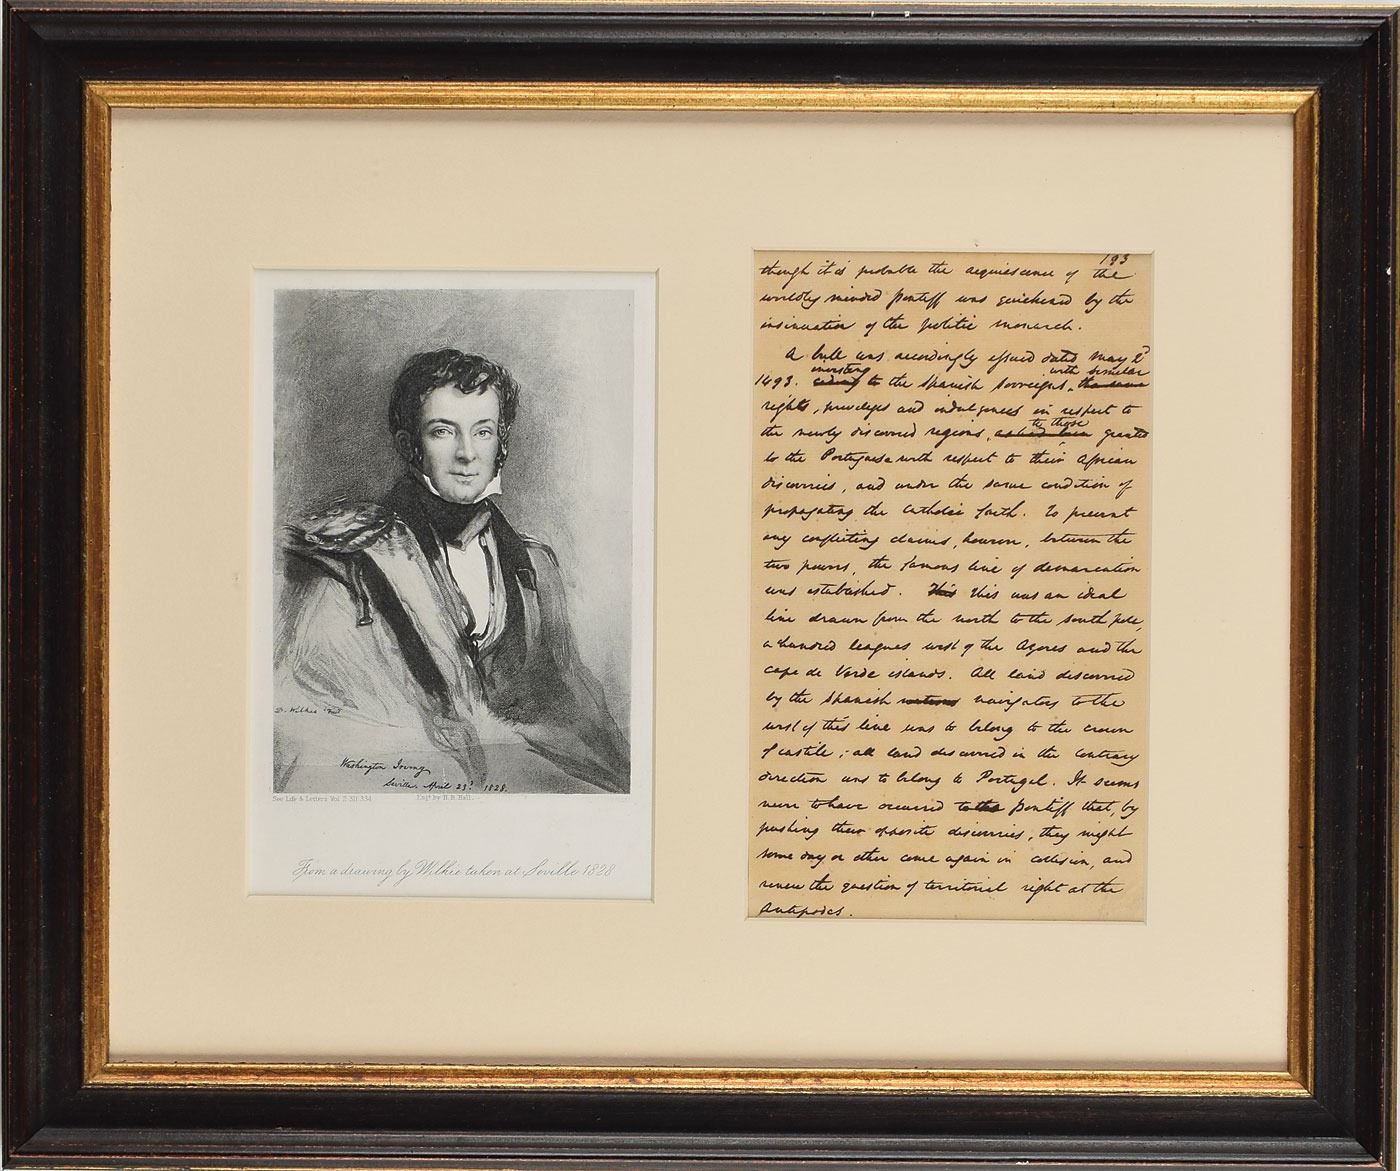 D. Wilkie
Washington Irving
Seville, April 23d. 1828.
See Life & Letters Vol 2 311 334
Engd by H. B. Hall
From a drawing by Wilkie taken at Seville 1828
193
though it is probable the acquiescence of the
worldly minded pontiff was quickened by the
insinuation of the politic monarch.
A bull was accordingly issued dated May 2d
investing with similar
1493. ceding to the Spanish sovreigns, the same
rights, priveleges and indulgences in respect to
to those
the newly discovered regions, as had been granted
to the Portuguese with respect to their African
discoveries, and under the same condition of
propagating the Catholic faith. To prevent
any conflicting claims, however, between the
two powers, the famous line of demarcation
was established. This This was an ideal
line drawn from the north to the south pole,
a hundred leagues west of the Azores and the
Cape de Verde islands. All land discovered
by the Spanish navigators to the
west of this line was to belong to the crown
of castile; all land discovered in the contrary
direction was to belong to Portugal. It seems
never to have occurred to the pontiff that, by
pushing their opposite discoveries, they might
some day or other come again in collision, and
renew the question of territorial right at the
Antipodes.